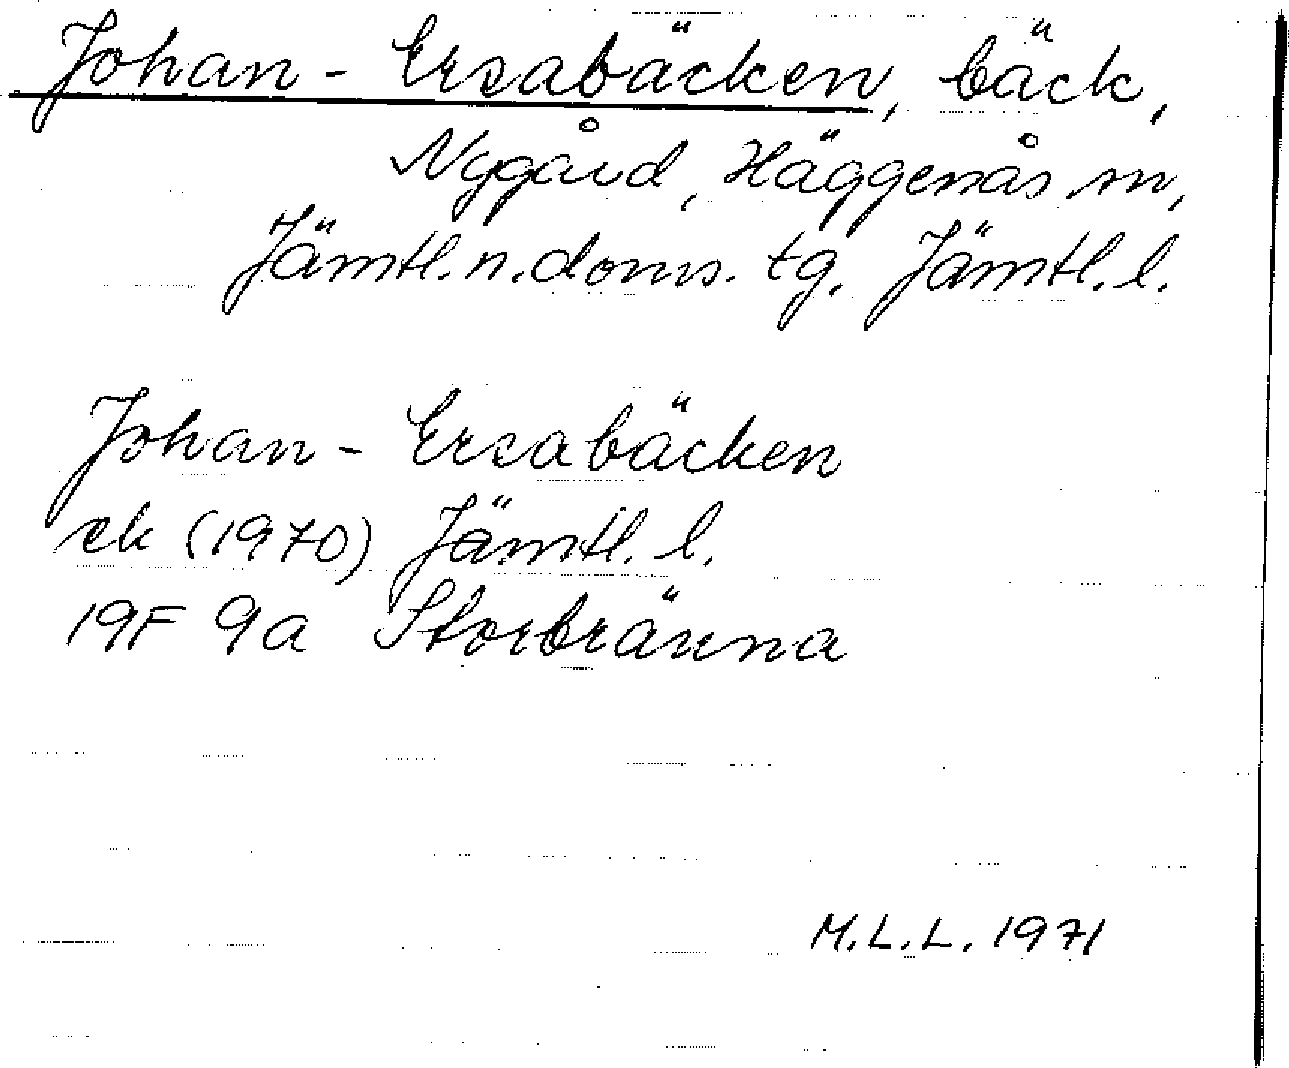 Johan-Ersabäcken, bäck,
Nygård, Häggenås sn,
Jämtl.n.doms. tg. Jämtl.l.
Johan-Ersabäcken
ek (1970) Jämtl. l.
19F 9a Storbränna
M.L.L. 1971